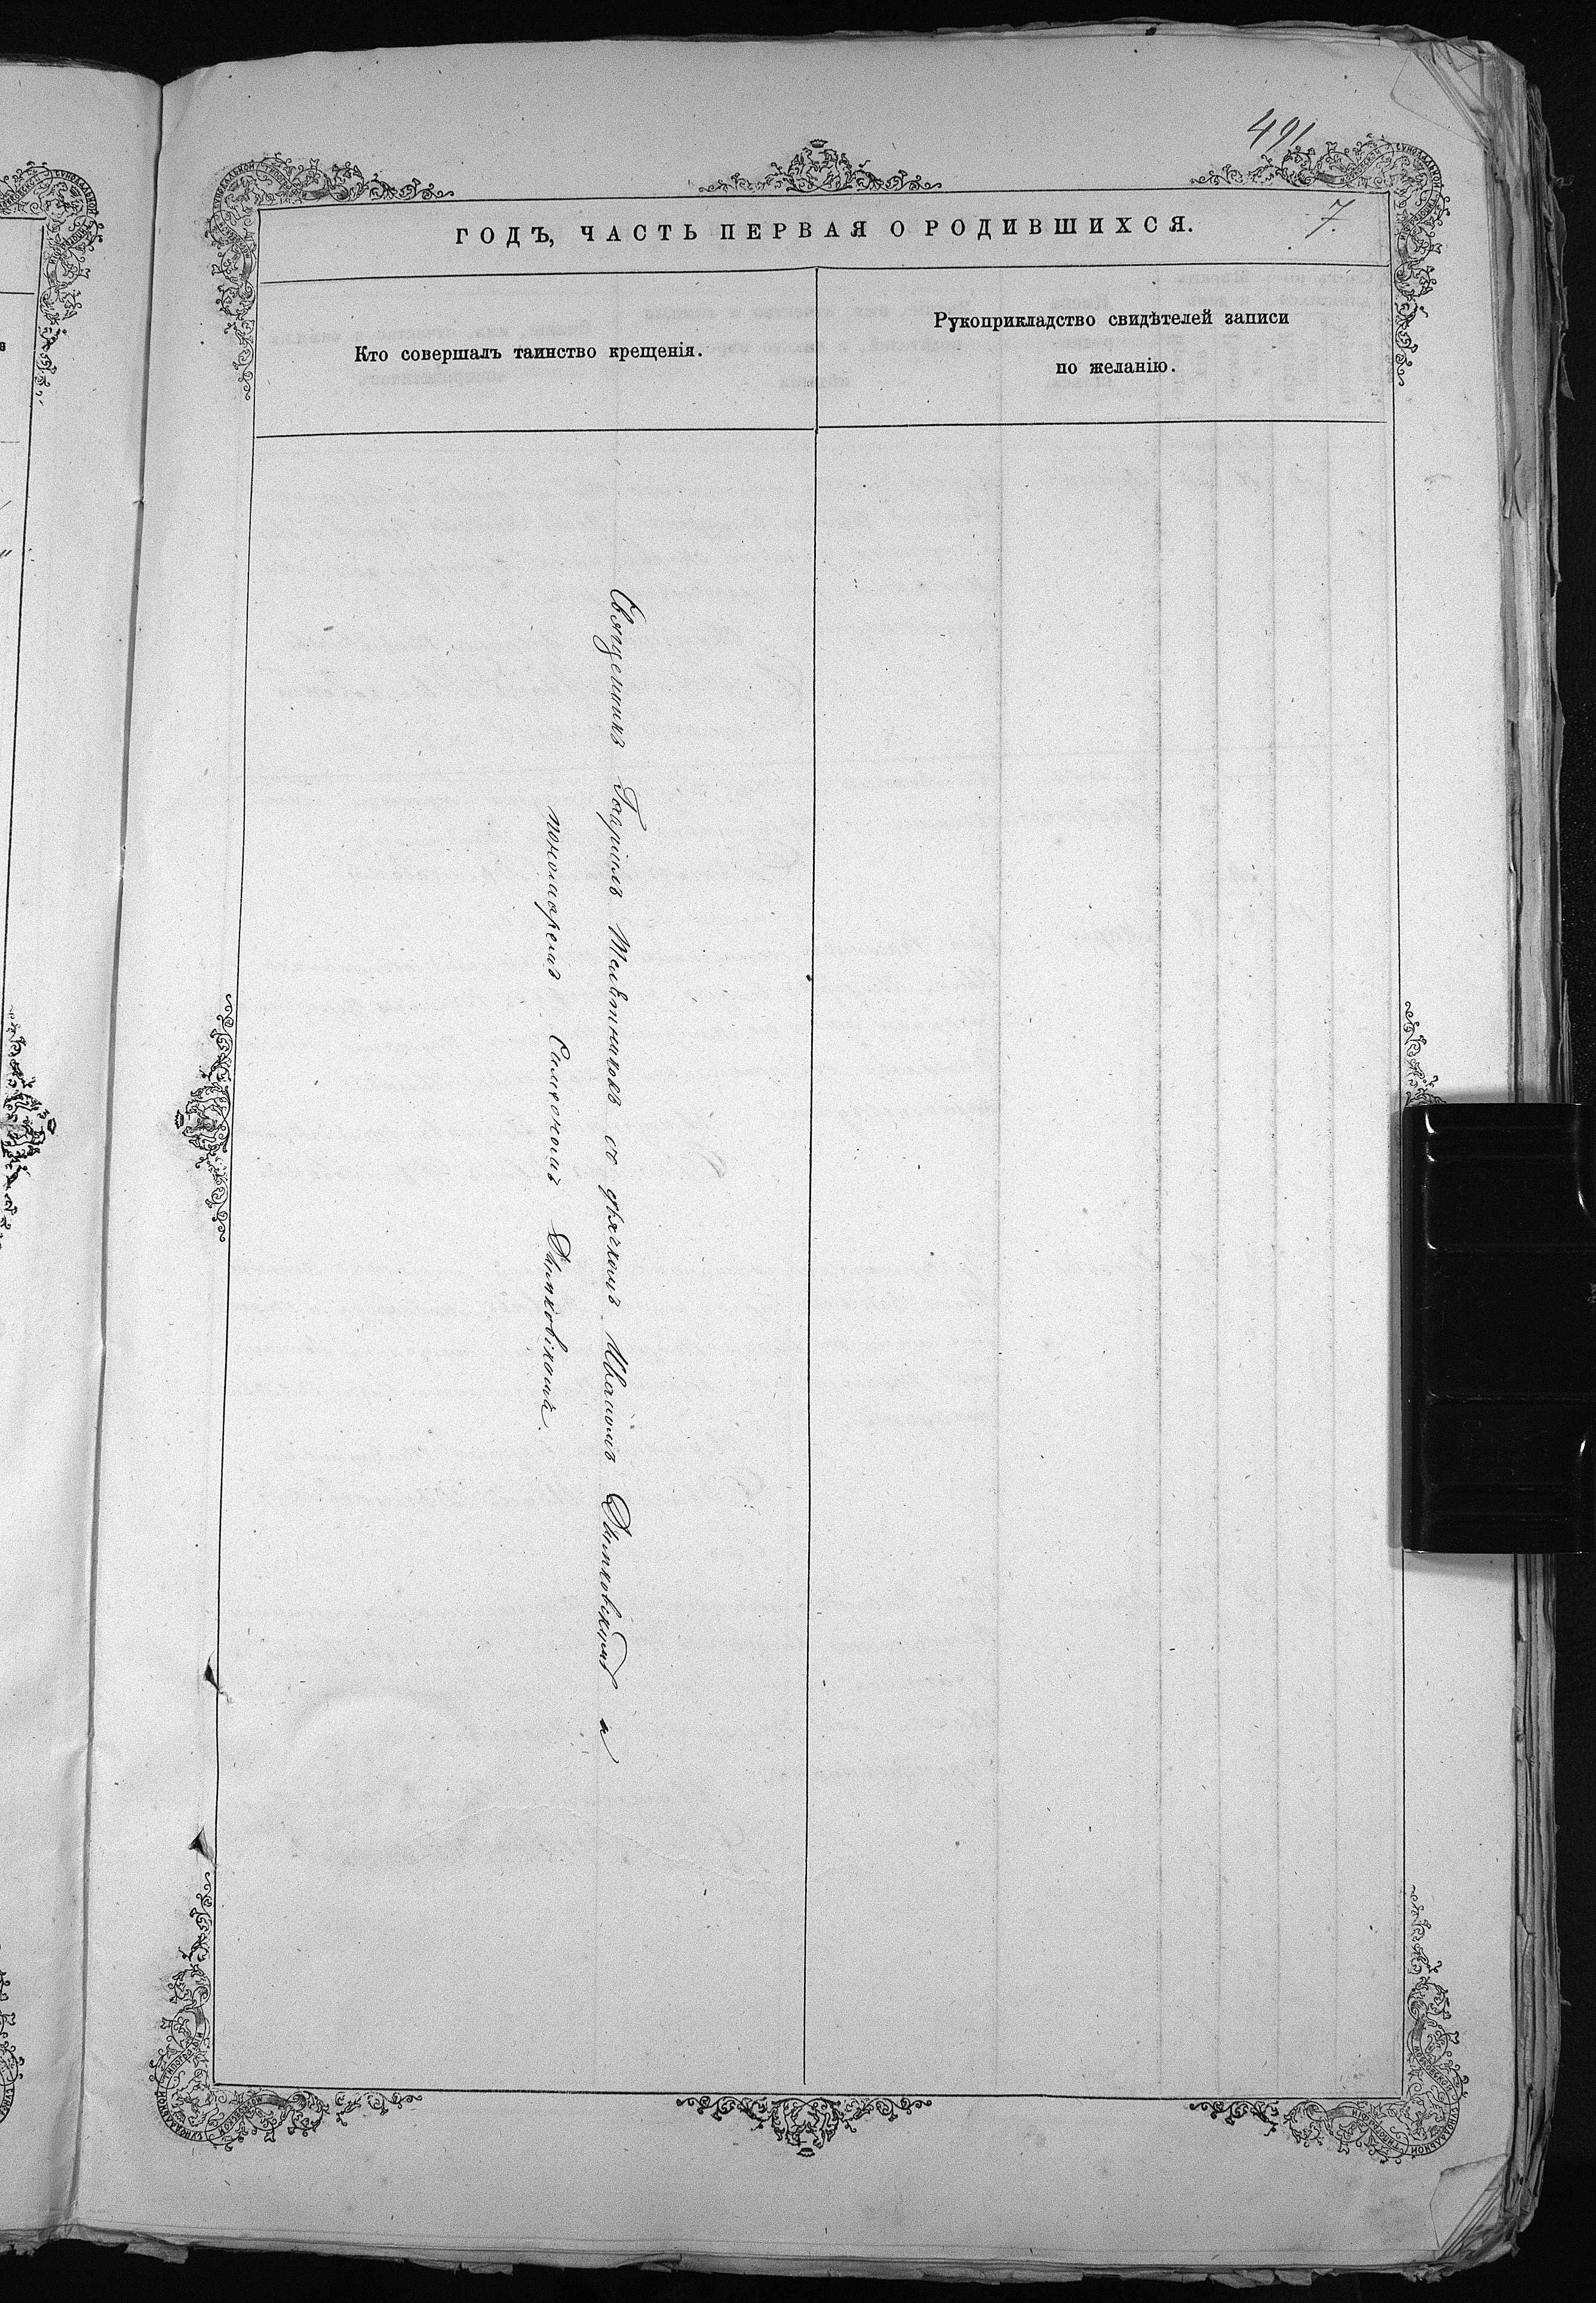 491
7.
ГОДЪ, ЧАСТЬ ПЕРВАЯ О РОДИВШИХСЯ.
Кто совершалъ таинство крещенія.
Рукоприкладство свидѣтелей записи
по желанію.
Священникъ Гавріилъ съ дьячкомъ Иваномъ Дымковскимъ и
пономаремъ Симеономъ